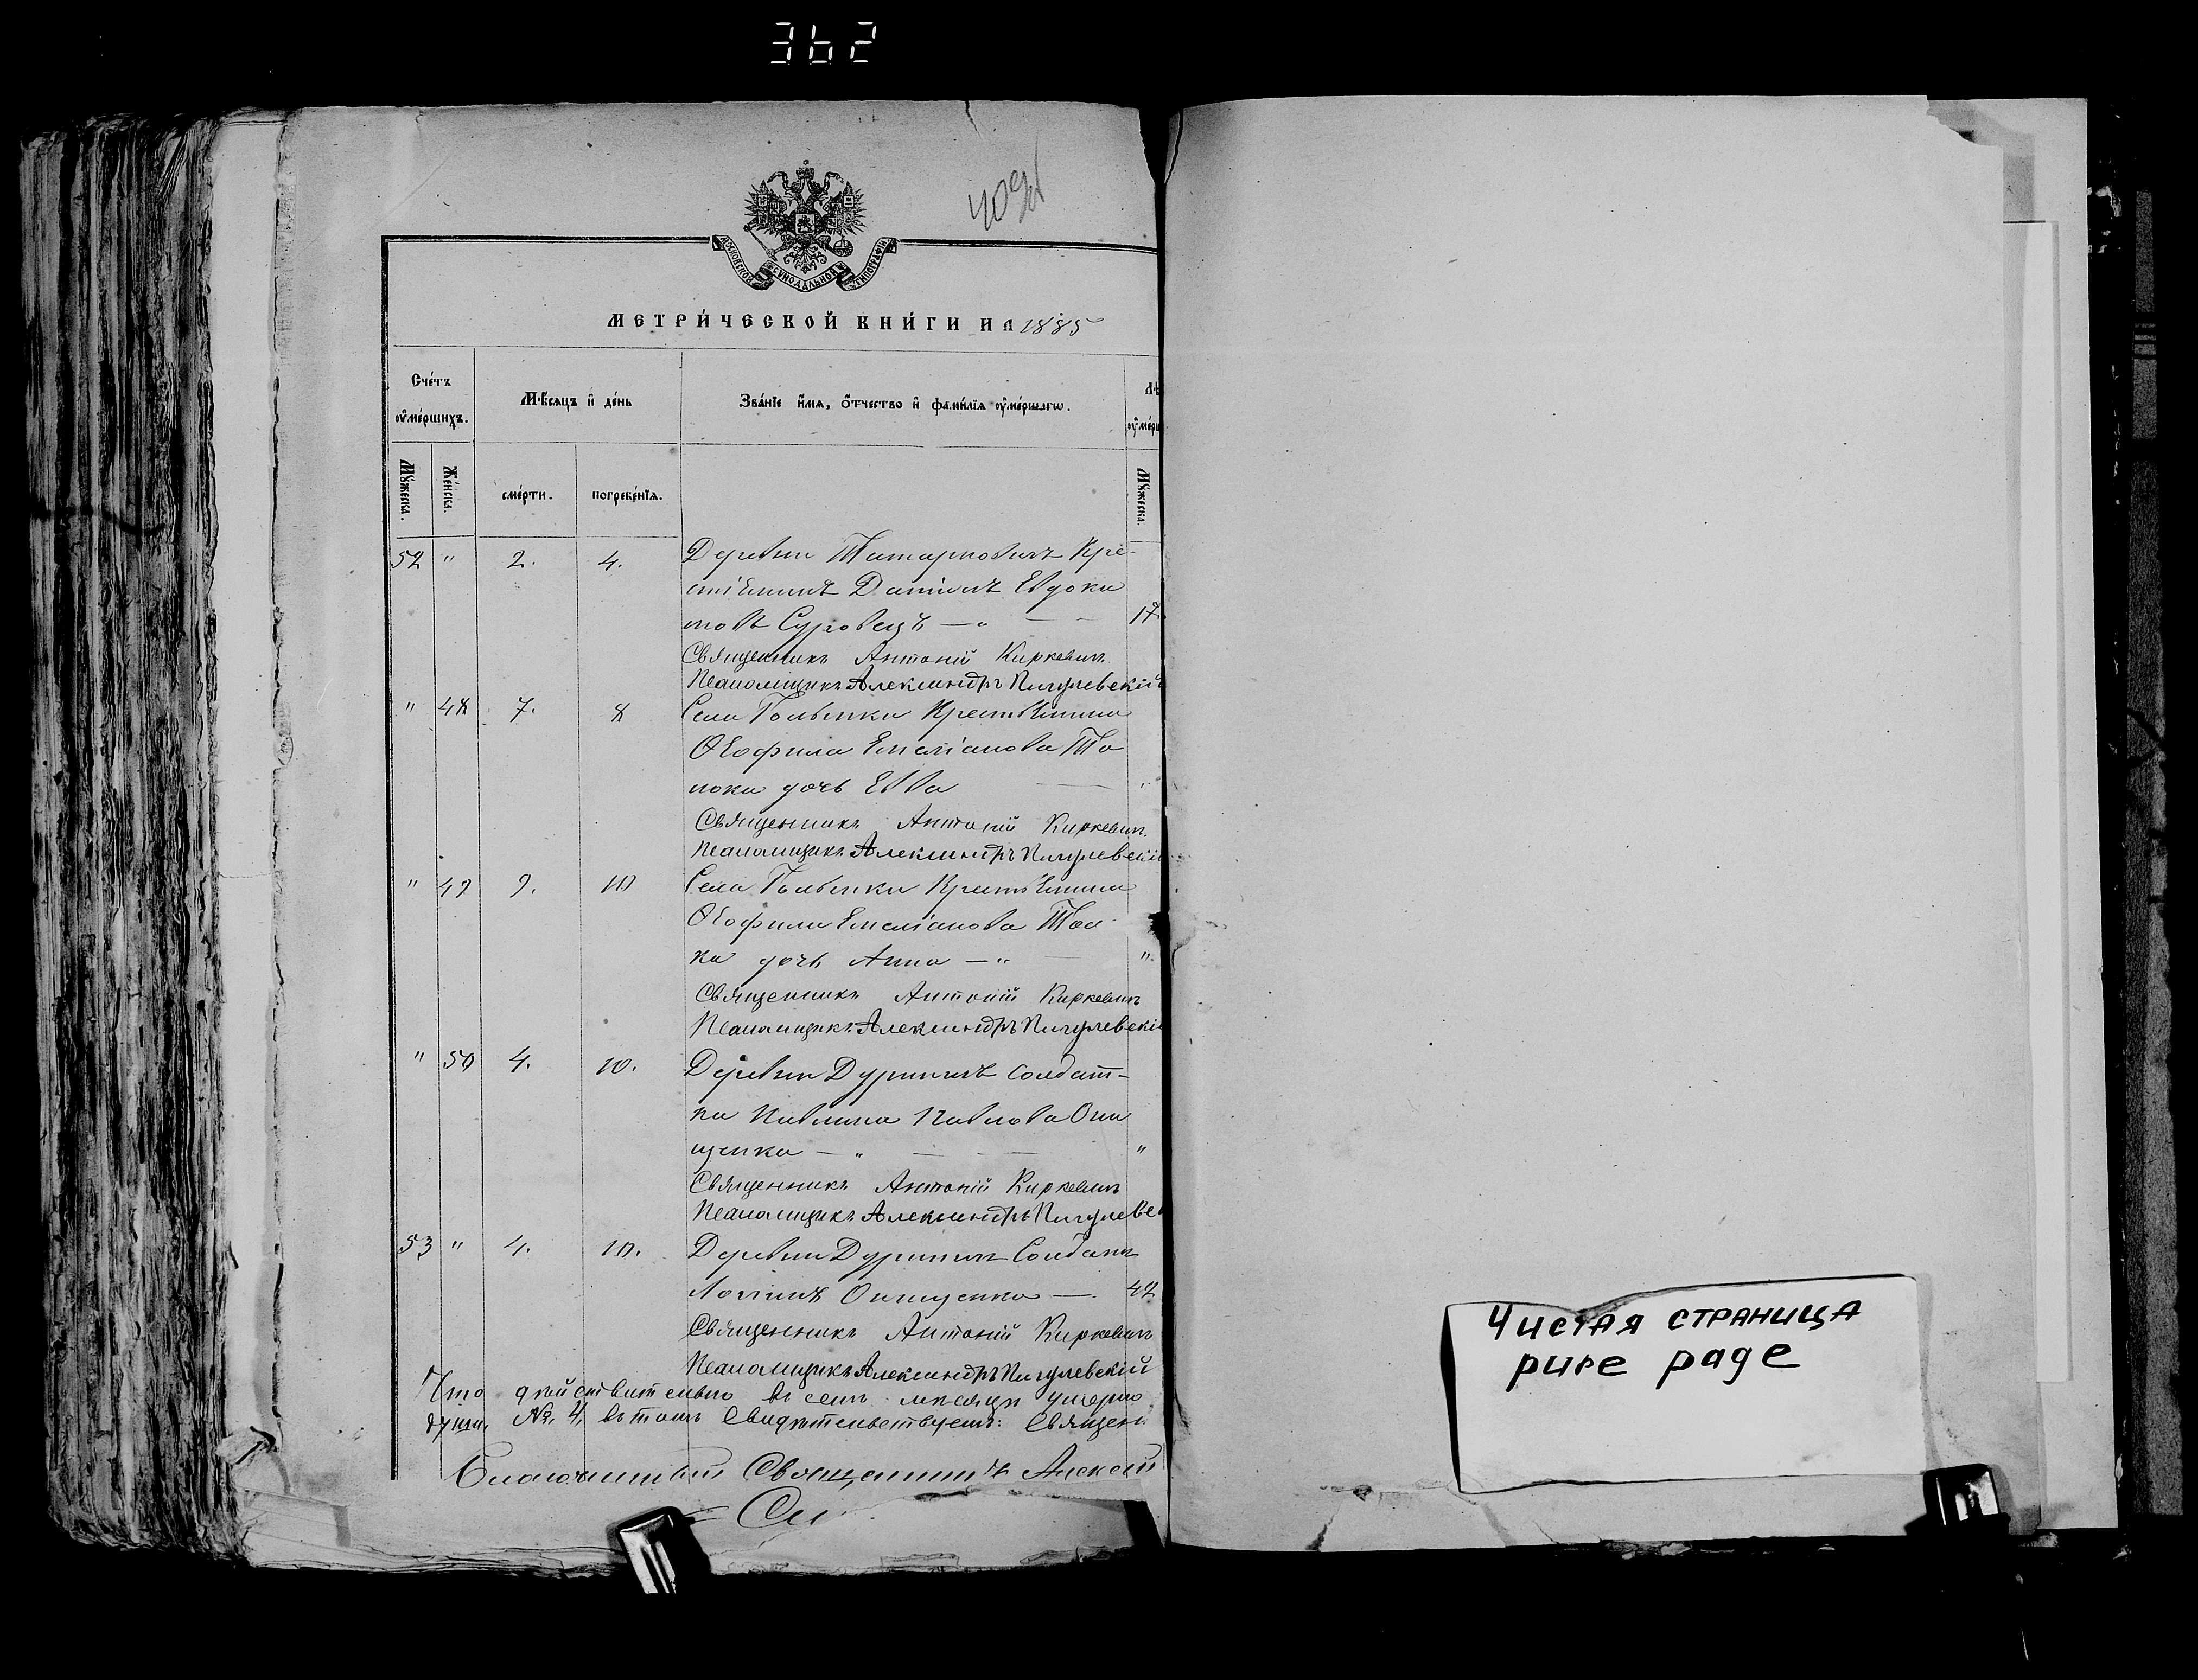 362
409
МОСКОВСКОЙ СѴНОДАЛЬНОЙ ТИПОГРАФІИ
МЕТРИ́ЧЕСКОЙ КНИ́ГИ НА 1885
Сче́тъ ᲂу҆ме́ршихъ.
Мѣ́сяцъ и҆ де́нь
Зва́нїе и҆́мѧ, ѻ҆́тчество и҆ фами́лїѧ ᲂу҆ме́ршагѡ.
Лѣ
ᲂу҆ме́рш
Мꙋ́жеска.
Же́нска.
сме́рти.
погребе́нїѧ.
Мꙋ́жеска.
52 " 2. 4. Деревни Татарковичъ Кре-
стьянинъ Данiилъ Евдоки
мовъ Суровецъ — " 17
Священникъ Антоній Киркевичъ
Псаломщикъ Александръ Пигулевскій
" 48 7. 8 Села Голынки Крестьянина
Ѳеофила Емеліанова То
поки дочь Евва "
Священникъ Антоній Киркевичъ
Псаломщикъ Александръ Пигулевскій
" 49 9. 10 Села Голынки Крестьянина
Ѳеофила Емеліанова
ка дочь Анна — " "
Священникъ Антоній Киркевичъ
Псаломщикъ Александръ Пигулевскій
" 50 4. 10. Деревни Дуриничъ Солдат-
ка Павлина Павлова Они
щенка — " "
Священникъ Антоній Киркевичъ
Псаломщикъ Александръ Пигулевск
53 " 4. 10. Деревни Дуриничъ Солдатъ
Логгинъ Онищенко — 42
Священникъ Антоній Киркевичъ
Псаломщикъ Александръ Пигулевскій
Что дѣйствительно въ семъ мѣсяцѣ умерло
въ томъ свидѣтельствуемъ: Священ
Благочинный Священникъ Алексѣй
Чистая страница
pure page